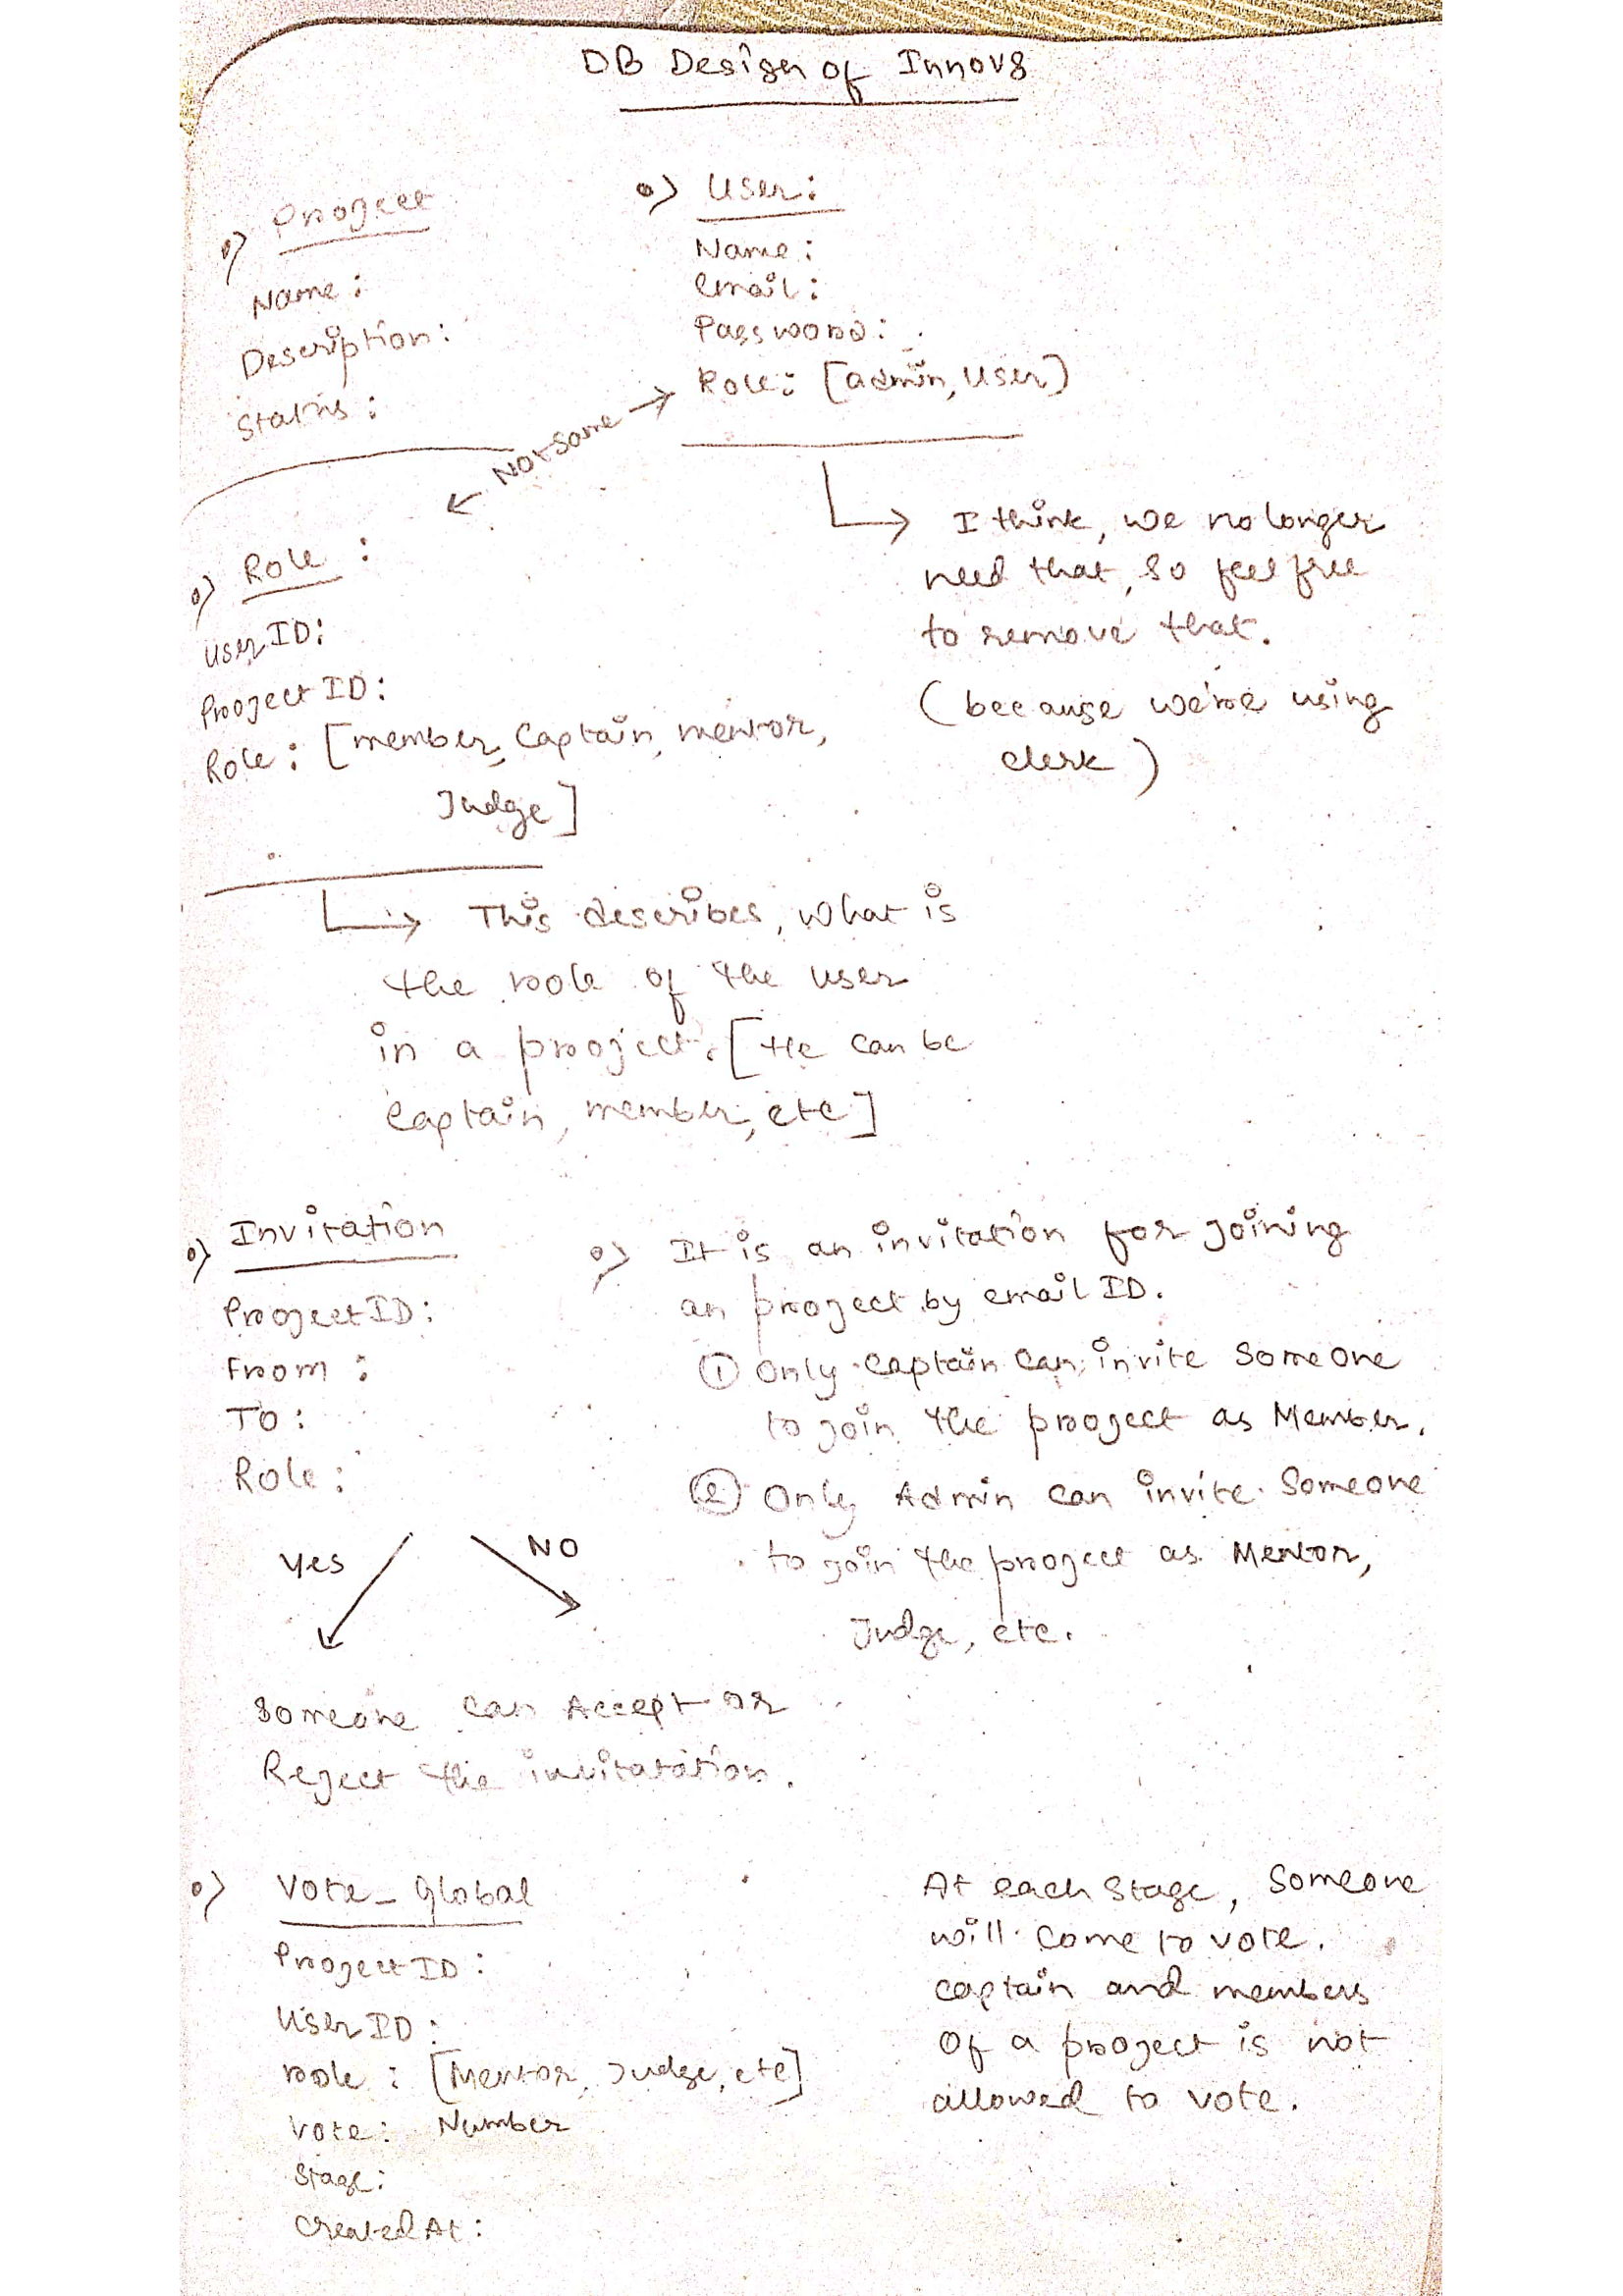 DB Design of Innov8
o) Project
Name :
Description :
Status :
o) User :
Name :
email :
Password :
Role : [admin, User]
← Not same →
I think, we no longer
need that, so feel free
to remove that.
(because we're using
clerk)
o) Role :
User ID :
Project ID :
Role : [member, Captain, mentor,
Judge]
This describes, what is
the role of the user
in a project. [He can be
Captain, member, etc]
o) Invitation
Project ID :
From :
To :
Role :
Yes
NO
Someone can Accept or
Reject the invitatation.
o) It is an invitation for joining
an project by email ID.
① Only captain can invite Someone
to join the project as Member.
② Only Admin can invite Someone
to join the project as Mentor,
Judge, etc.
o) Vote_Global
Project ID :
User ID :
role : [Mentor, Judge, etc]
Vote : Number
Stage :
CreatedAt :
At each stage, Someone
will come to vote.
captain and members
Of a project is not
allowed to vote.